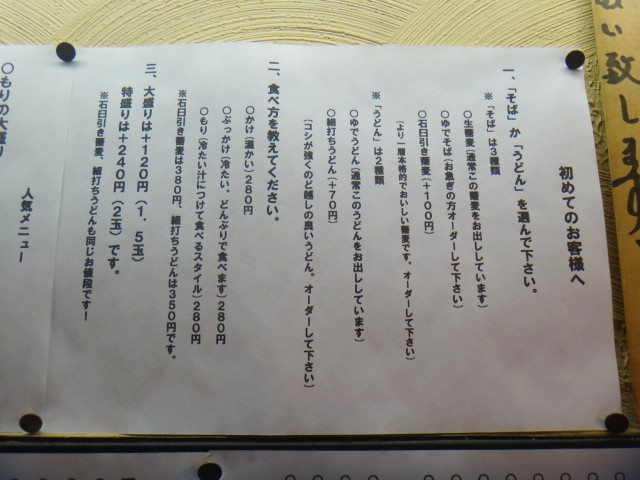 い致します
初めてのお客様へ
一、「そば」か「うどん」を選んで下さい。
※「そば」は３種類
○生蕎麦（通常この蕎麦をお出ししています）
○ゆでそば（お急ぎの方オーダーして下さい）
○石臼引き蕎麦（＋１００円）
（より一層本格的でおいしい蕎麦です。オーダーして下さい）
※「うどん」は２種類
○ゆでうどん（通常このうどんをお出ししています）
○細打ちうどん（＋７０円）
（コシが強くのど越しの良いうどん。オーダーして下さい）
二、食べ方を教えてください。
○かけ（温かい）２８０円
○ぶっかけ（冷たい。どんぶりで食べます）２８０円
○もり（冷たい汁につけて食べるスタイル）２８０円
※石臼引き蕎麦は３８０円、細打ちうどんは３５０円です。
三、大盛りは＋１２０円（１．５玉）
特盛りは＋２４０円（２玉）です。
※石臼引き蕎麦、細打ちうどんも同じお値段です！
人気メニュー
○もりの大盛り